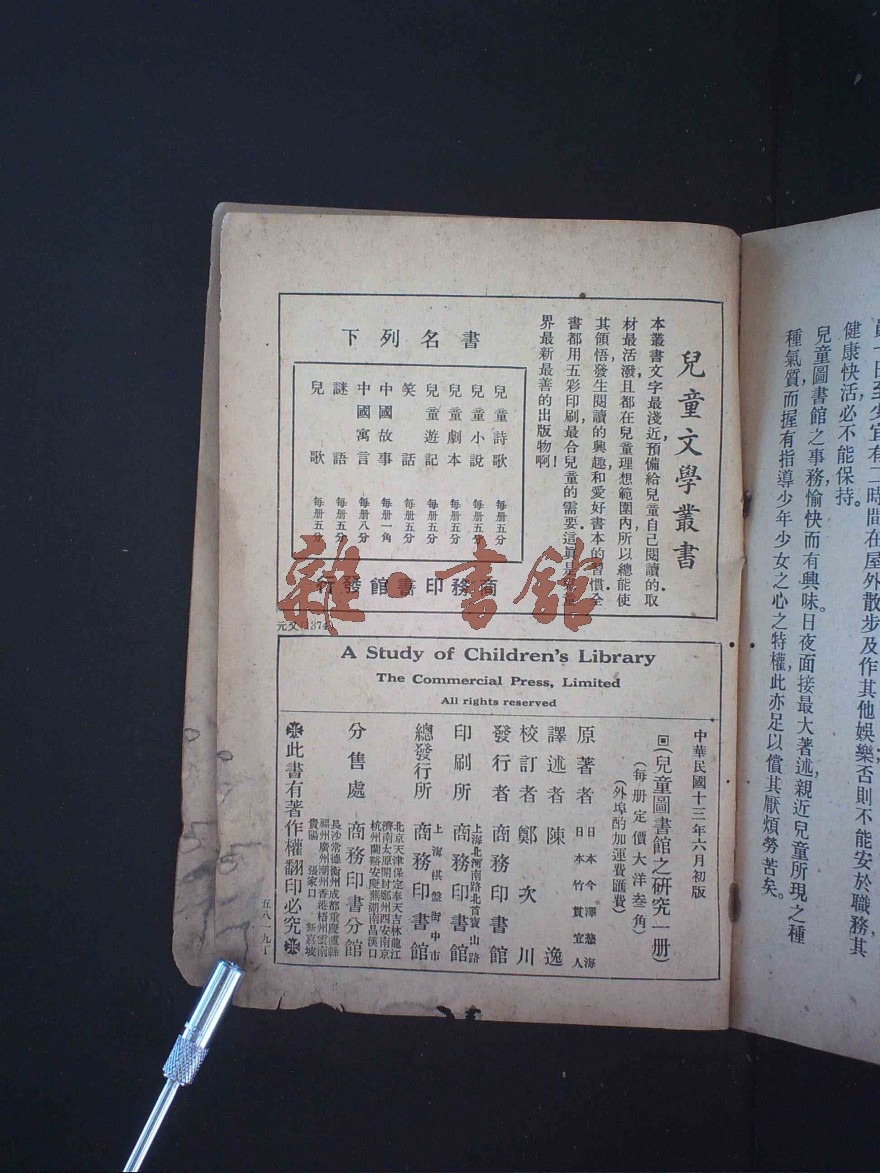 員一日至少宜有二時間在屋外散步及作其他娛樂否則不能安於職務其
健康快活必不能保持。
兒童圖書館之事務愉快而有興味。日夜面接最大著述,親近兒童所現之種
種氣質而握有指導少年少女之心之特權,此亦足以償其厭煩勞苦矣。
兒童文學叢書
本叢書文字最淺近,預備給兒童自己閱讀的.取
材最活潑,且都在兒童理想範圍內,所以總能使
其領悟,發生閱讀的興趣和愛好書本的習慣.全
書都用五彩印刷,最合兒童的需要.這眞是兒童
界最新最善的出版物啊!
書名列下
兒童詩歌 每册五分
兒童小說 每册五分
兒童劇本 每册五分
兒童遊記 每册五分
笑話 每册五分
中國故事 每册一角
中國寓言 每册八分
謎語 每册五分
兒歌 每册五分
商務印書館發行
元又(1374)
雜·書館
A Study of Children's Library
The Commercial Press, Limited
All rights reserved
中華民國十三年六月初版
(兒童圖書館之研究一册)
(每册定價大洋叁角)
(外埠酌加運費匯費)
原著者 日本今澤慈海
日本竹貫宜人
譯述者 陳逸
校訂者 鄭次川
發行者 商務印書館
印刷所 上海北河南路北首寶山路
商務印書館
總發行所 上海棋盤街中市
商務印書館
分售處 商務印書分館
北京天津保定奉天吉林龍江
濟南太原開封鄭州西安南京
杭州蘭谿安慶蕪湖南昌漢口
長沙常德衡州成都重慶瀘縣
福州廣州潮州香港梧州雲南
貴陽 張家口 新嘉坡
此書有著作權翻印必究
五八一九丁